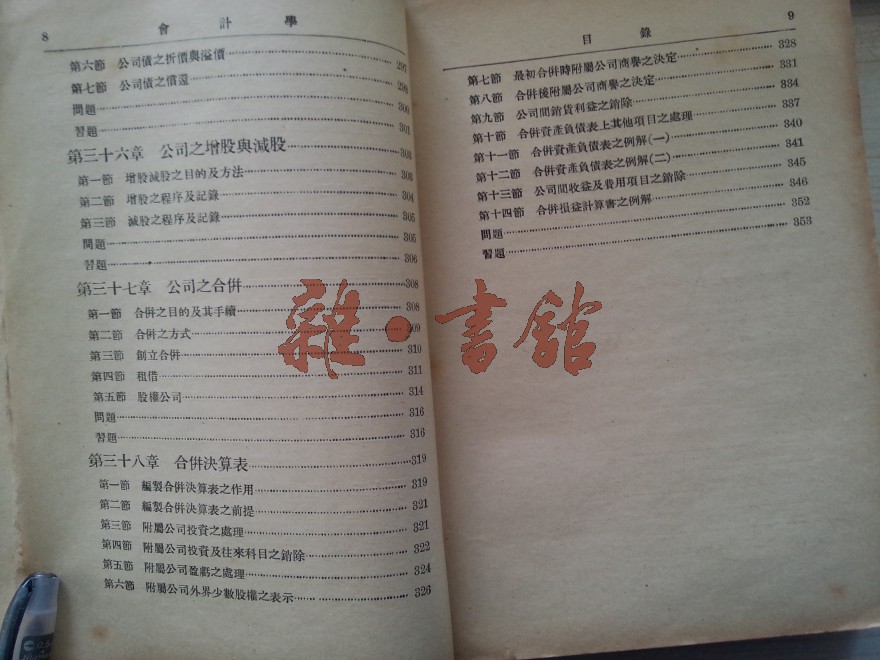 8 會計學
第六節 公司債之折價與溢價 297
第七節 公司債之償還 298
問題 300
習題 301
第三十六章 公司之增股與減股 303
第一節 增股減股之目的及方法 303
第二節 增股之程序及記錄 304
第三節 減股之程序及記錄 305
問題 305
習題 306
第三十七章 公司之合併 308
第一節 合併之目的及其手續 308
第二節 合併之方式 309
第三節 創立合併 310
第四節 租借 311
第五節 股權公司 314
問題 316
習題 316
第三十八章 合併決算表 319
第一節 編製合併決算表之作用 319
第二節 編製合併決算表之前提 321
第三節 附屬公司投資之處理 321
第四節 附屬公司投資及往來科目之銷除 322
第五節 附屬公司盈虧之處理 324
第六節 附屬公司外界少數股權之表示 326
目錄 9
第七節 最初合併時附屬公司商譽之決定 328
第八節 合併後附屬公司商譽之決定 331
第九節 公司間銷貨利益之銷除 334
第十節 合併資產負債表上其他項目之處理 337
第十一節 合併資產負債表之例解(一) 340
第十二節 合併資產負債表之例解(二) 341
第十三節 公司間收益及費用項目之銷除 345
第十四節 合併損益計算書之例解 346
問題 352
習題 353
雜·書館